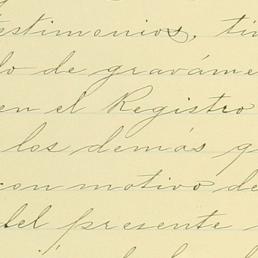 testimonios, tim
lo de graváme
en el Registro
los demás q
con motivo de
del presente